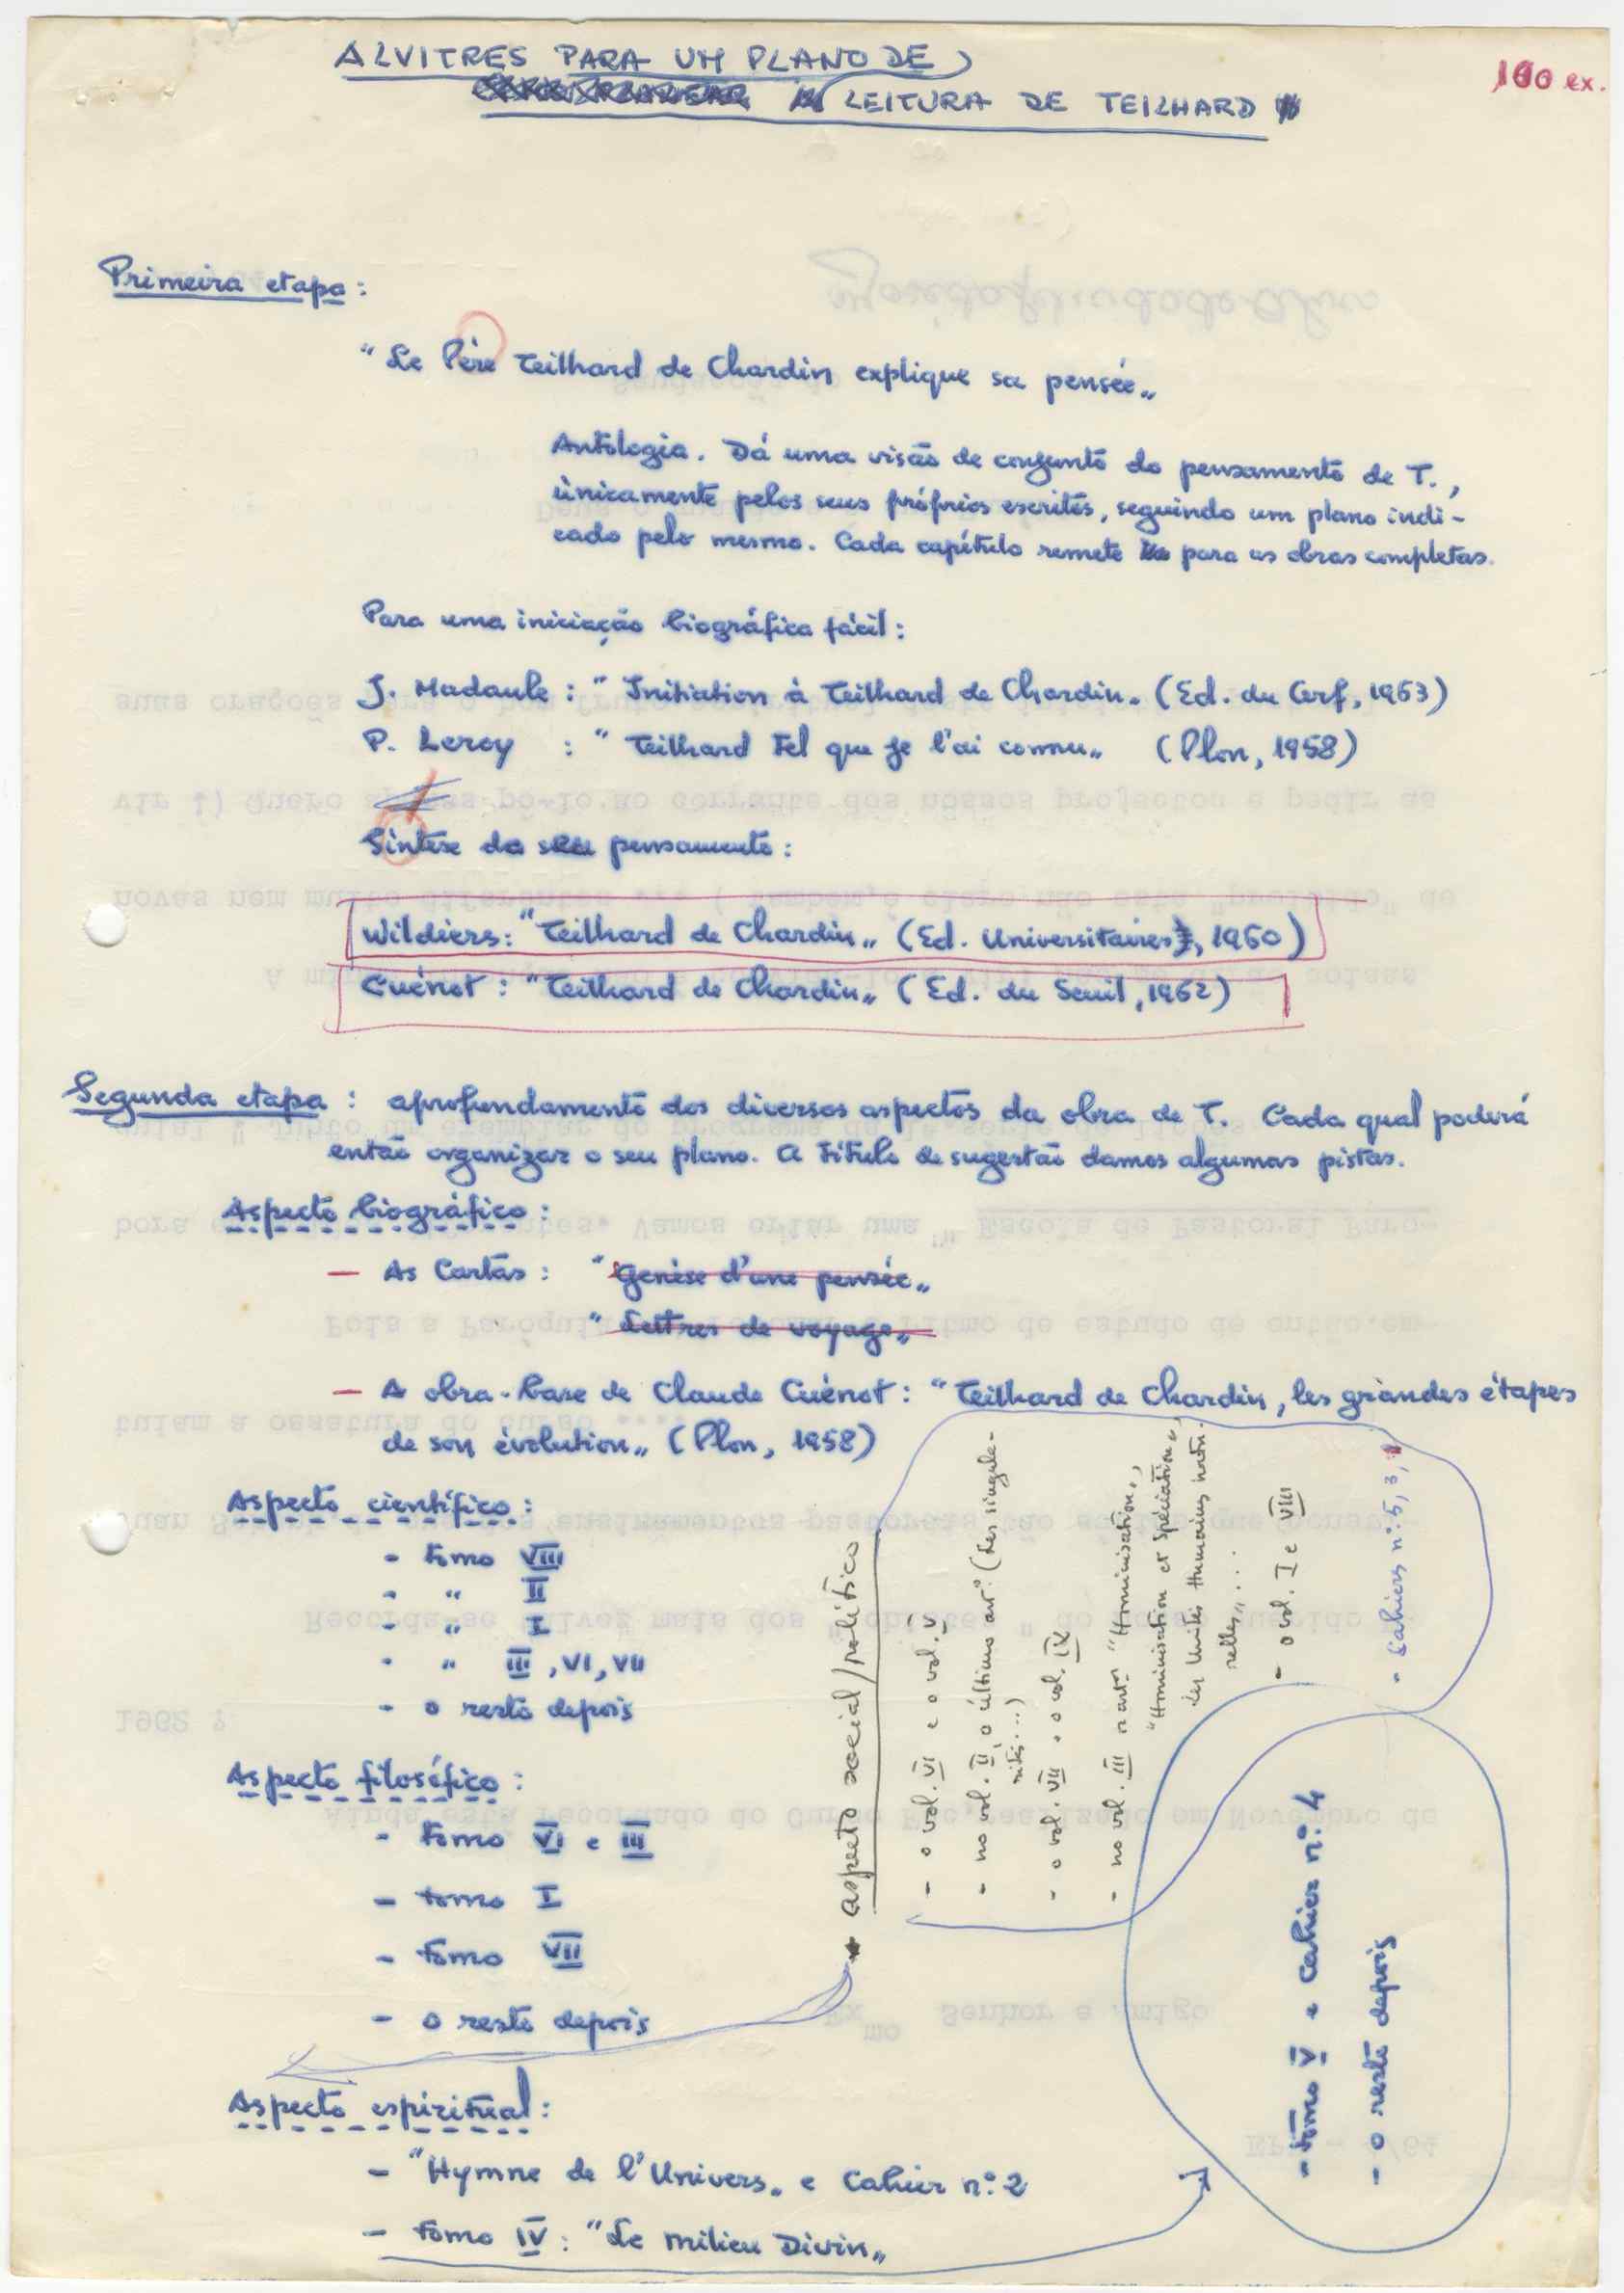 ALVITRES PARA UM PLANO DE
LEITURA DE TEILHARD
100 ex.
Primeira etapa:
"Le Père Teilhard de Chardin explique sa pensée„
Antologia. Dá uma visão de conjunto do pensamento de T.,
ùnicamente pelos seus próprios escritos, seguindo um plano indi-
cado pelo mesmo. Cada capítulo remete para as obras completas.
Para uma iniciação biográfica fácil:
J. Madaule: "Initiation à Teilhard de Chardin„ (Ed. du Cerf, 1963)
P. Leroy : "Teilhard tel que je l'ai connu„ (Plon, 1958)
Síntese do seu pensamento:
Wildiers: "Teilhard de Chardin„ (Ed. Universitaires, 1960)
Cuénot: "Teilhard de Chardin„ (Ed. du Seuil, 1962)
Segunda etapa: aprofundamento dos diversos aspectos da obra de T. Cada qual poderá
então organizar o seu plano. A título de sugestão damos algumas pistas.
Aspecto biográfico:
— As Cartas: "Genèse d'une pensée„
"Lettres de voyage„
— A obra-base de Claude Cuénot: "Teilhard de Chardin, les grandes étapes
de son évolution„ (Plon, 1958)
Aspecto científico:
- tomo VIII
- " II
- " I
- " III, VI, VII
- o resto depois
Aspecto filosófico:
- tomo VI e III
- tomo I
- tomo VII
- o resto depois
aspecto social/político
- o vol. VI e o vol. V
- no vol. II, o último art.º (Les singula-
rités...)
- o vol. VII e o vol. IV
- no vol. III o art. "Hominisation„,
"Hominisation et Spéciation„,
Les Unités Humaines natu-
relles„...
- o vol. I e VIII
- Cahiers n.º 5, 3,
Aspecto espiritual:
- "Hymne de l'Univers„ e Cahier n.º 2
- tomo IV: "Le Milieu Divin„
- tomo V e Cahier n.º 4
- o resto depois